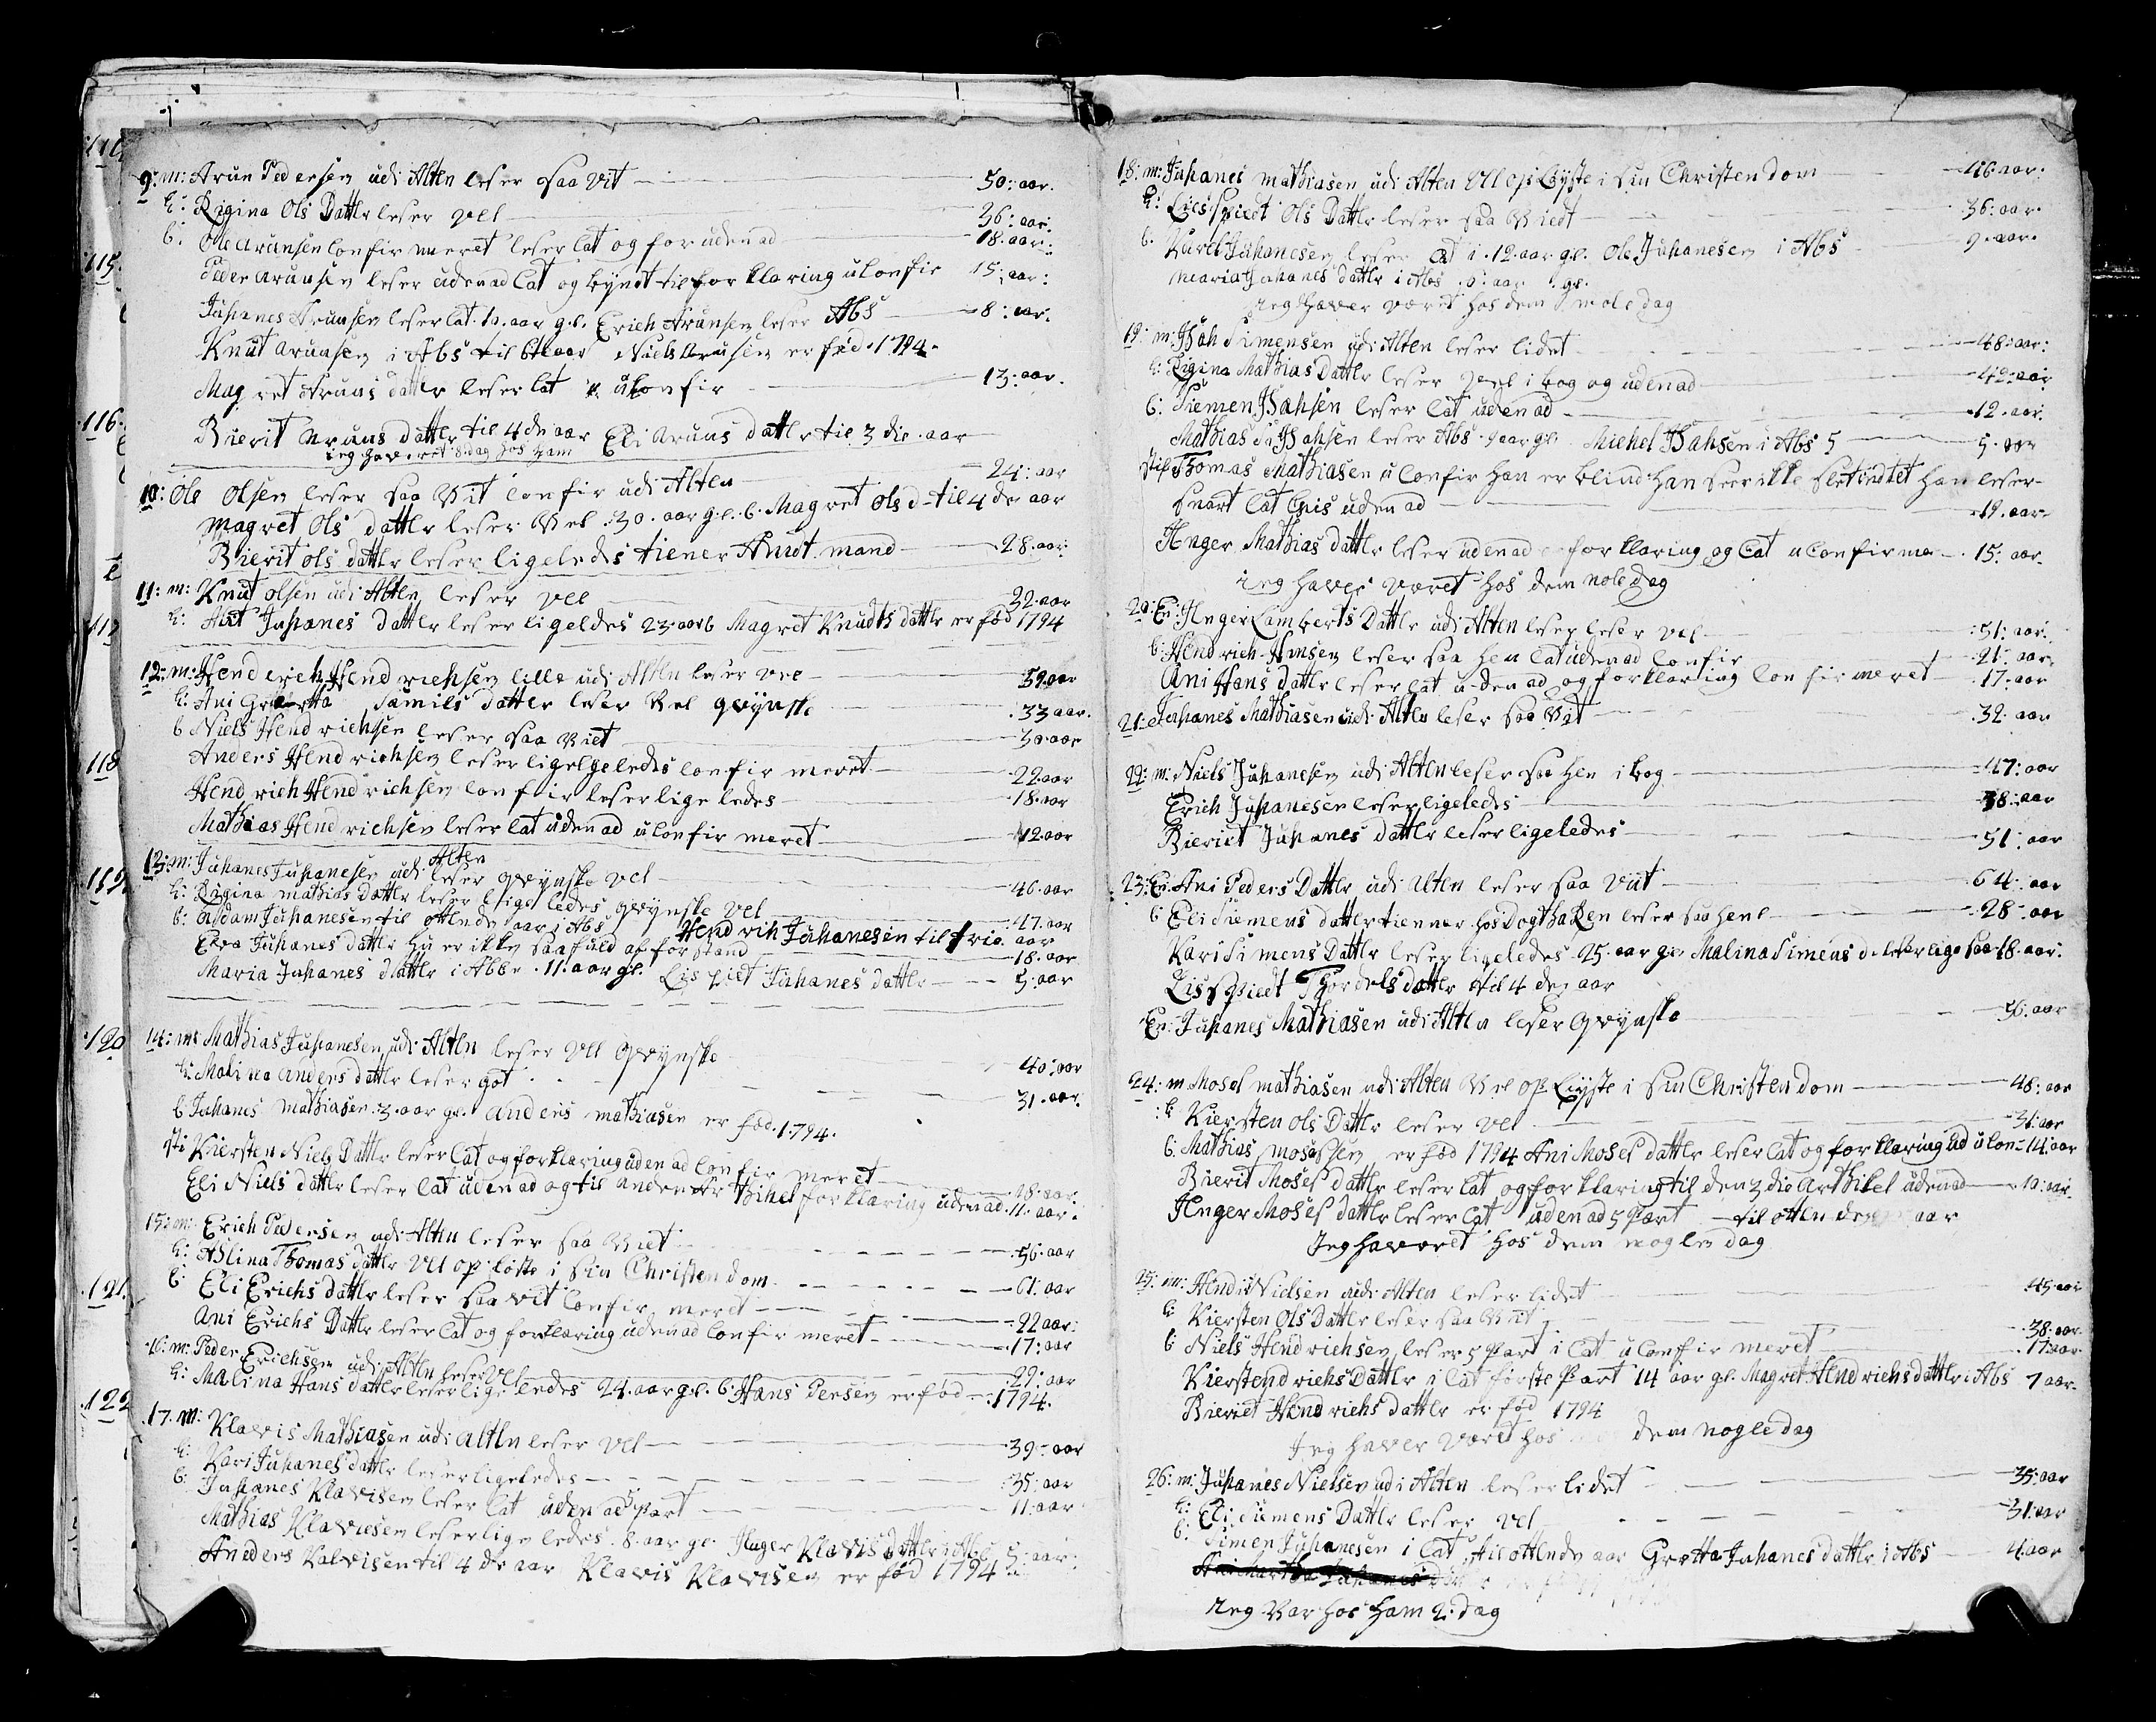 9: m: Arun Pedersen udi Alten leser saa vit 50: aar.
k: Rigina Ols Dattr leser vel 36: aar.
b: Ole Arunsen Confirmeret leser Cat og for udenad 18. aar.
Peder Arunsen leser udenad Cat og byndt til forklaring uConfir 15: aar:
Juhanes Arunsen leser Cat. 10. aar gl. Erich Arunsen leser Abs 8: aar.
Knut Arunsen i Abs til 6te aar Niels Arunsen er fød. 1794.
Magret Aruns dattr leser Cat uConfir 13: aar.
Bierit Aruns dattr til 4 de aar Eli Aruns dattr til 3 die. aar
10: Ole Olsen leser saa Vit Confir udi Alten 24: aar
Magret Ols dattr leser Vel :30. aar gl. b. Magret Ols d- til 4 de aar
Bierit Ols dattr leser ligeledes tiener Amdt. mand 28. aar
11: m: Knut Olsen udi Alten leser vel 32. aar
k: Juhanes dattr leser ligeldes 23 aar b Magret Knudts dattr er fød 1794
12: m: Henderich Hendrichsen lille udi Alten leser vel 59 aar
k: Ani Gretta Samils dattr leser Vel qvynske 33 aar.
b Niels Hendrichsen leser saa Viet 30 aar
Anders Hendrichsen leser ligelgeledes Confirmeret 22 aar
Hendrich Hendrichsen Confir leser ligeledes 18. aar
Mathias Hendrichsen leser Cat udenad uConfirmeret 12 aar
13: m: Juhanes Juhanesen udi Alten leser qvynske vel 46 aar
k: Rigina Mathias Dattr leser lige ledes qvynske vel 47. aar
b: Adam Juhanesen til ottende aar i Abs Hendrih Juhanesen til trie. aar
Eva Juhanes dattr hu er ikke saa fuld af forstand 18. aar
Maria Juhanes dattr i Abbe. 11. aar gl. Lispiet Juhanes dattr 5. aar
14: m: Mathias Juhanesen udi Alten leser vel qvynske 40: aar
k: Malina Anders dattr leser got 31. aar.
b Juhanes Mathiasen. 3. aar gl. Anders Mathiasen er fød. 1794.
sti Kiersten Niels Dattr leser Cat og forklaring udenad Confirmeret 18. aar.
Eli Niels dattr leser Cat udenad og til anden Arthikel forklaring udenad. 11. aar:
15: m: Erich Pedersen udi Alten leser saa Viet 56. aar
k: Ahlina Thomas dattr vel op løste i sin Christendom 61. aar
b: Eli Erichs Dattr leser saa vit Confirmeret 22 aar:
Ani Erichs Dattr leser Cat og forklaring udenad Confirmeret 17: aar
16: m: Peder Erichsen udi Alten leser vel 22: aar
k: Malina Hans dattr leser lige ledes 24. aar gl. b: Hans Persen er fød 1794.
17. m: Klavis Mathiasen udi Alten leser vel 39: aar
k: Kari Juhanes dattr leser ligeledes 35: aar
b: Juhanes Klavisen leser Cat udenad 5 Part 11: aar
Mathias Klaviesen leser lige ledes. 8. aar gl. Ilnger Klavis dattr i Abs 5: aar:
Aneders Kalvisen til 4 de aar Klavis Klavisen er fød 1794
18: m: Juhanes Mathiasen udi Alten Vel op Liyste i sin Christendom 46. aar:
k: Liespiedt Ols Dattr leser saa Viedt 36: aar.
b. Karel Juhanesen leser Cat i .12. aar gl. Ole Juhanesen i Abs 9. aar.
Maria Juhanes dattr i Abs .6: aar gl.
Ieg Haver veret hos dem mole dag
19: m: Isah Simensen udi Alten leser lidet 48: aar:
k: Rigina Mathias Dattr leser vel i bog og udenad 42: aar
b: Siemen Isahsen leser Cat udenad 12. aar.
Mathias Isahsen leser Abs. 9 aar gl. Michel Isahsen i Abs 5 5. aar
stif Thomas Mathiasen uConfir han er blind han seer ikke slet indtet han leser
snart Cat udenad 19. aar
Ilnger Mathias dattr leser udenad forklaring og Cat uConfirme 15: aar.
ieg haver været hos dem nole dag
20: En: Ilnger Lamberts Dattr udi Alten leser leser vel 51: aar:
b: Hendrich Hansen leser saa hen Cat udenad Confir 21: aar.
Ani Hans dattr leser Cat u-denad og forklaring Confirmeret 17: aar
21: Juhanes Mathiasen udi Alten leser saa Vit 32. aar
22: m: Niels Juhanesen udi Alten leser saa hen i bog 47: aar
Erich Juhanesen leser ligeledes 38: aar
Bieriet Juhanes dattr leser ligeledes 51: aar
23: En: Ani Peders Dattr udi Alten leser saa viit 64: aar
b Eli Siemens dattr tienner hos leser saa hene 28: aar
Kari Simens Dattr leser ligeledes 25. aar gl Malina Simens d. leser lige saa 18. aar.
Lisspiedt dattr til 4 de aar
En: Juhanes Mathiasen udi Alten leser qvynske 56. aar
24: m Moses Mathiasen udi Alten Vel op Liyste i sin Christendom 48: aar
:k Kiersten Ols Dattr leser vel 31: aar
b: Mathias Mosessen er fød 1794 Ani Moses dattr leser Cat og forklaring ud uCon 14: aar
Bierit Moses dattr leser Cat og forklaring til den 3 die Arthikel udenad 10: aar.
Ilnger Moses dattr leser Cat udenad 5 Part til otten de aar
Jeg haveret hos dem noglen dag
25: m: Hend Nielsen udi Alten leser lidet 45 aar
k: Kiersten Ols Dattr leser saa Viit 38: aar.
b: Niels Hendrichsen leser 5 Part i Cat uConfirmeret 17: aar.
Kierstendrichs Dattr i Cat første Part 14 aar gl. Magret Hendrichs dattr i Abs 7 aar.
Bieriet Hendrichs dattr er fød 1794
Jeg haver været hos dem nogle dag
26: m: Juhanes Nielsen udi Alten leser lidet 35: aar
k: Eli Siemens Dattr leser vel 31: aar
b: Simen Juhanesen i Cat til ottende aar Gretta Juhanes dattr i Abs 4: aar
Ieg Var hos ham 2: dag